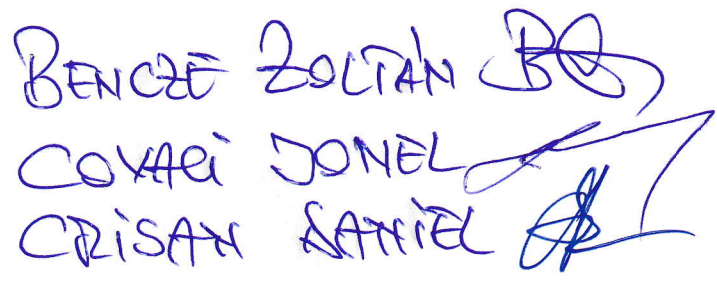 BENCZE ZOLTÁN
COVACI IONEL
CRISAN DANIEL